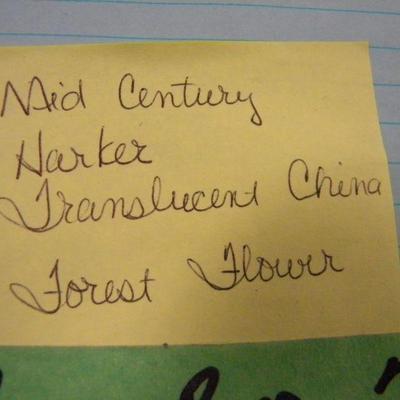 Mid Century
Harker
Translucent China
Forest Flower